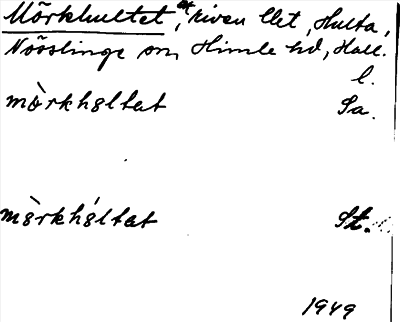 Mörkhultet, riven lht, Hulta,
Nösslinge sn, Himle hd, Hall.
l.
mə̀rkhəltat Sa.
mə̀rkhə́ltat St.
1949